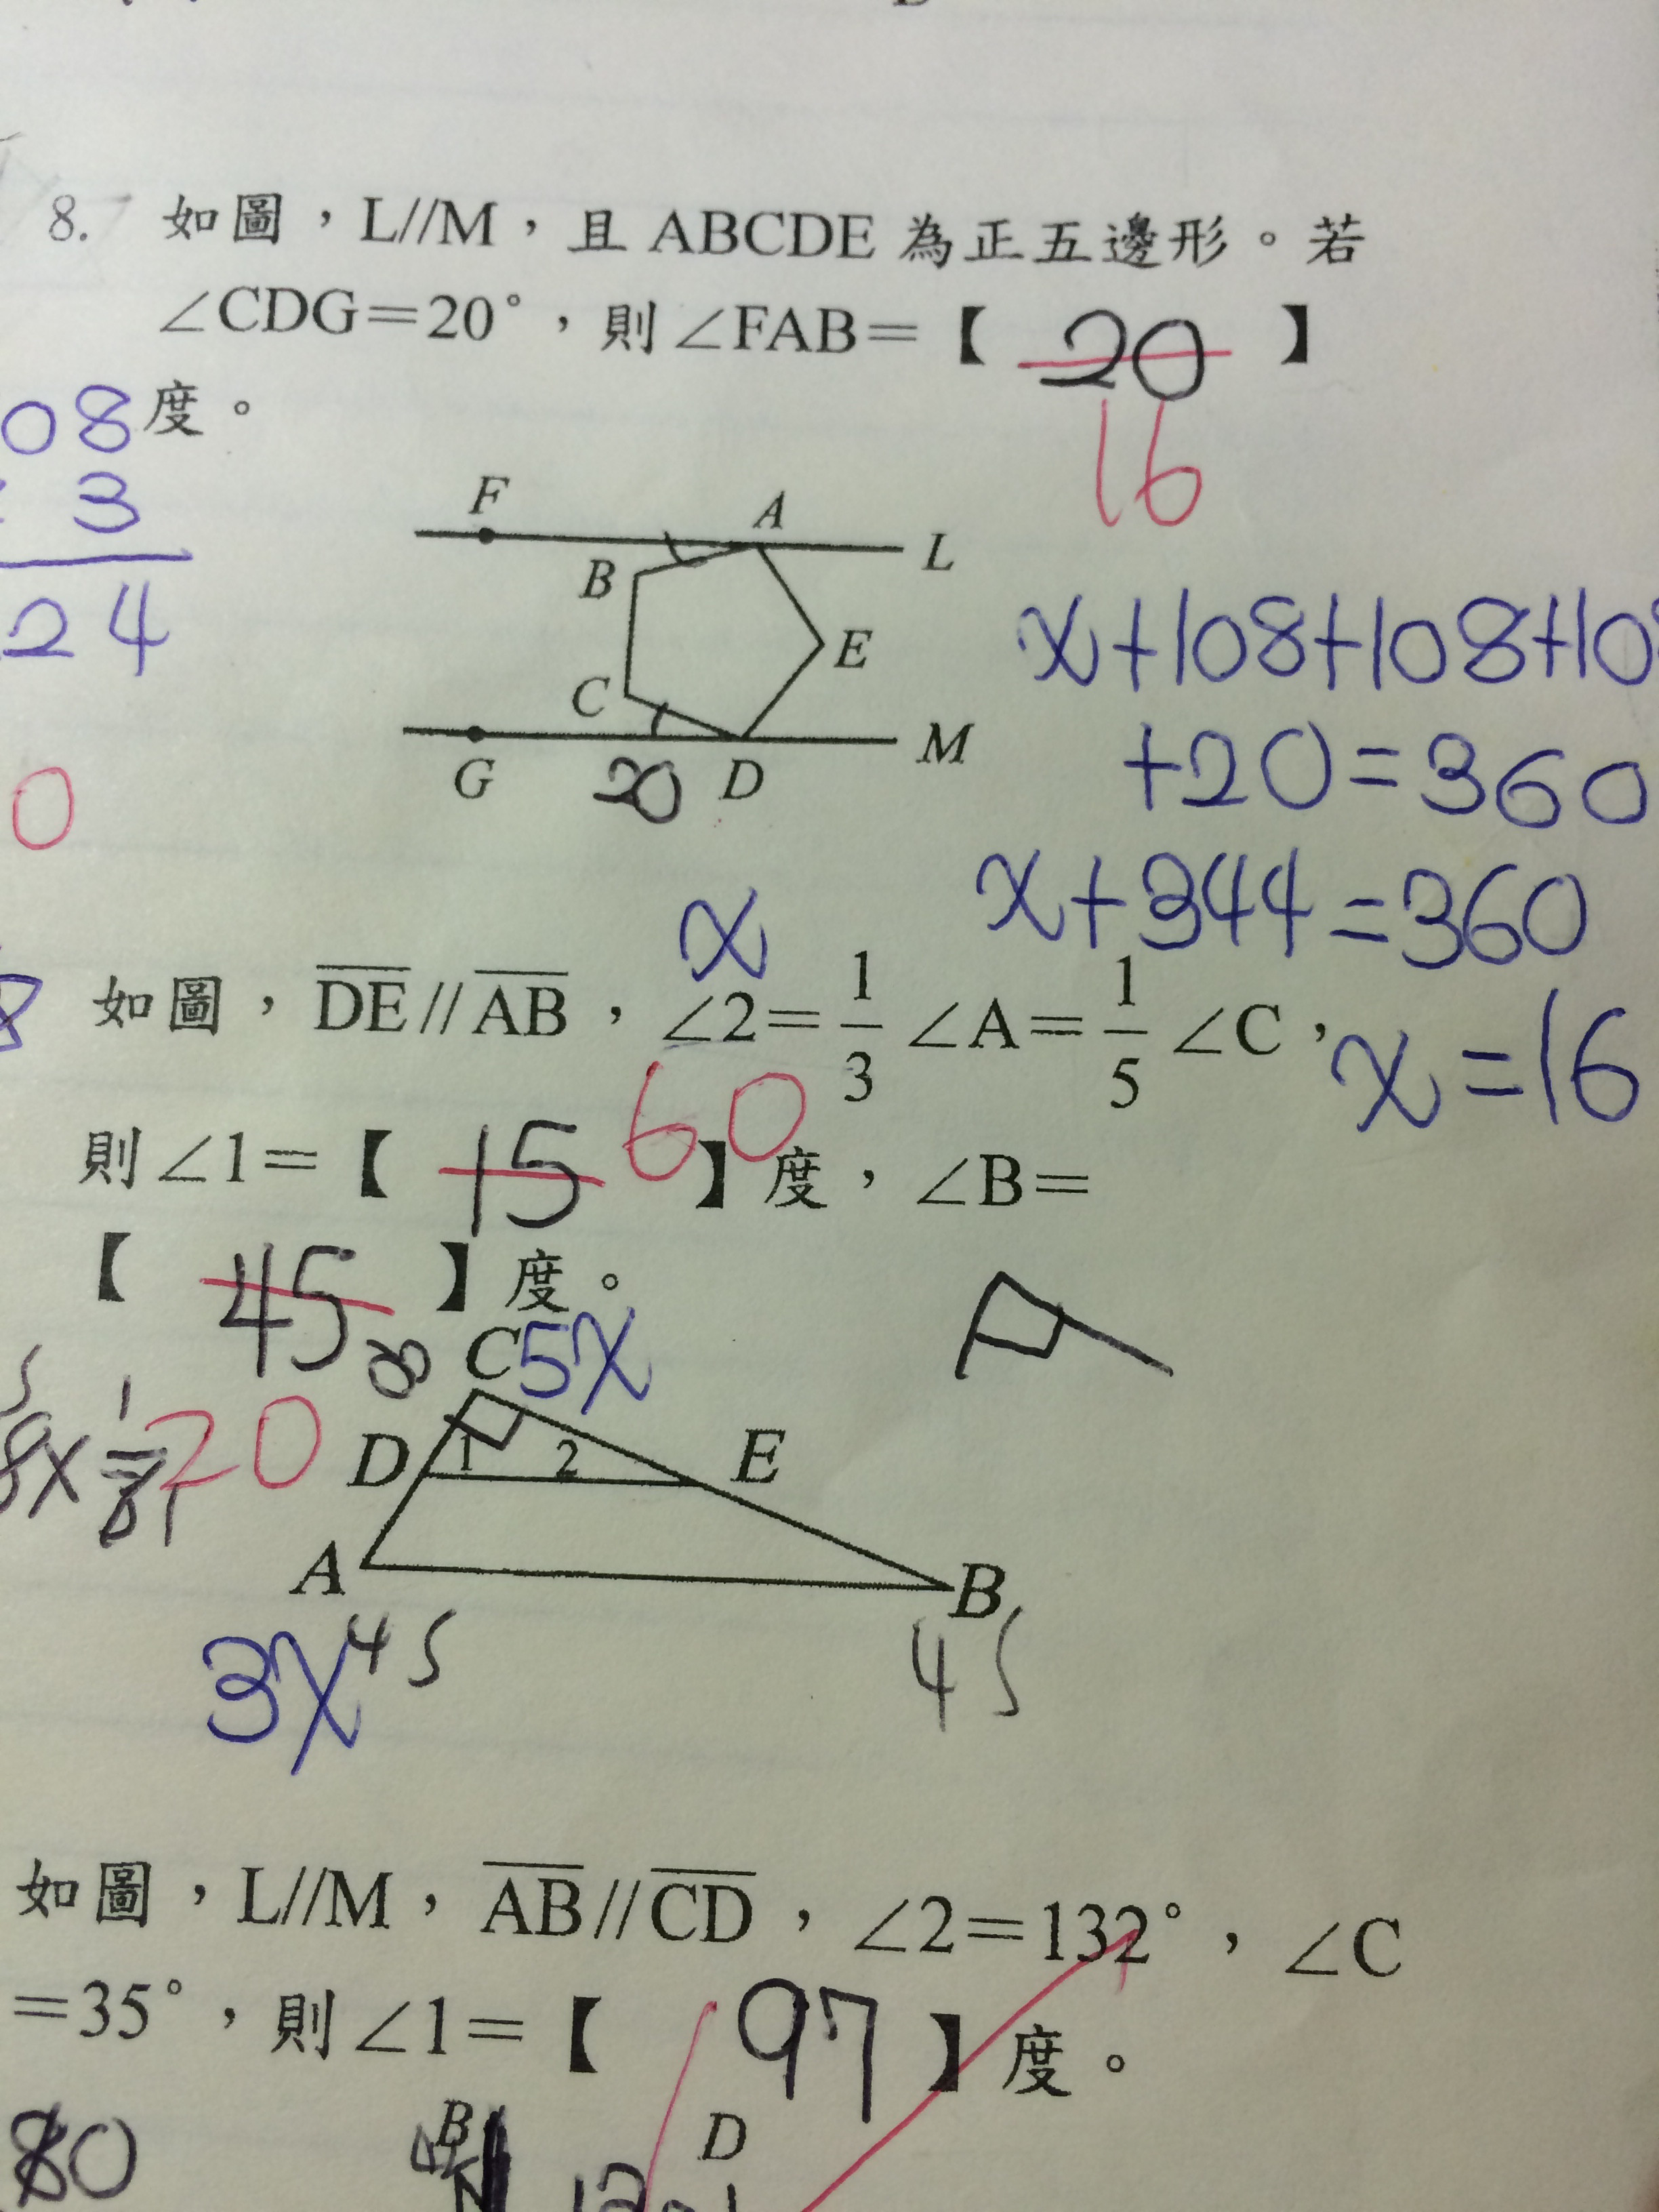 8. 如圖，L//M，且 ABCDE 為正五邊形。若
∠CDG=20°，則∠FAB=【 20 】
16
度。
08
3
24
F A L
B
E
C
G 20 D M
x+108+108+10
+20=360
x+344=360
x=16
0
x
如圖，DE//AB，∠2=1/3∠A=1/5∠C，
則∠1=【 15 60 】度，∠B=
【 45 】度。
20
C 5x
D 1 2 E
A B
3x 45 45
如圖，L//M，AB//CD，∠2=132°，∠C
=35°，則∠1=【 97 】度。
80
B D